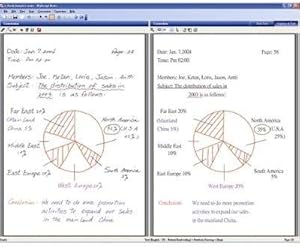 Date: Jan 7, 2004 Page: 58
Time: Pm 02:00
Members: Joe, Keton, Loris, Jason, Anti
Subject: The distribution of sales in
2003 is as follows:
Far East 20%
(Mainland
China 5%)
Middle East
10%
East Europe 10%
West Europe 25%
South America
5%
North America
35% U.S.A
25%
Conclusion: We need to do some promotion
activities to expand our sales
in the main land China
Date: Jan. 7, 2004 Page: 58
Time: Pm 02:00
Members: Joe, Keton, Loris, Jason, Anti
Subject: The distribution of sales in
2003 is as follows:
Far East 20%
(Mainland
China 5%)
Middle East
10%
East Europe 10%
West Europe 25%
South America
5%
North America
35% U.S.A
25%
Conclusion: We need to do more promotion
activities to expand our sales
in the mainland China.